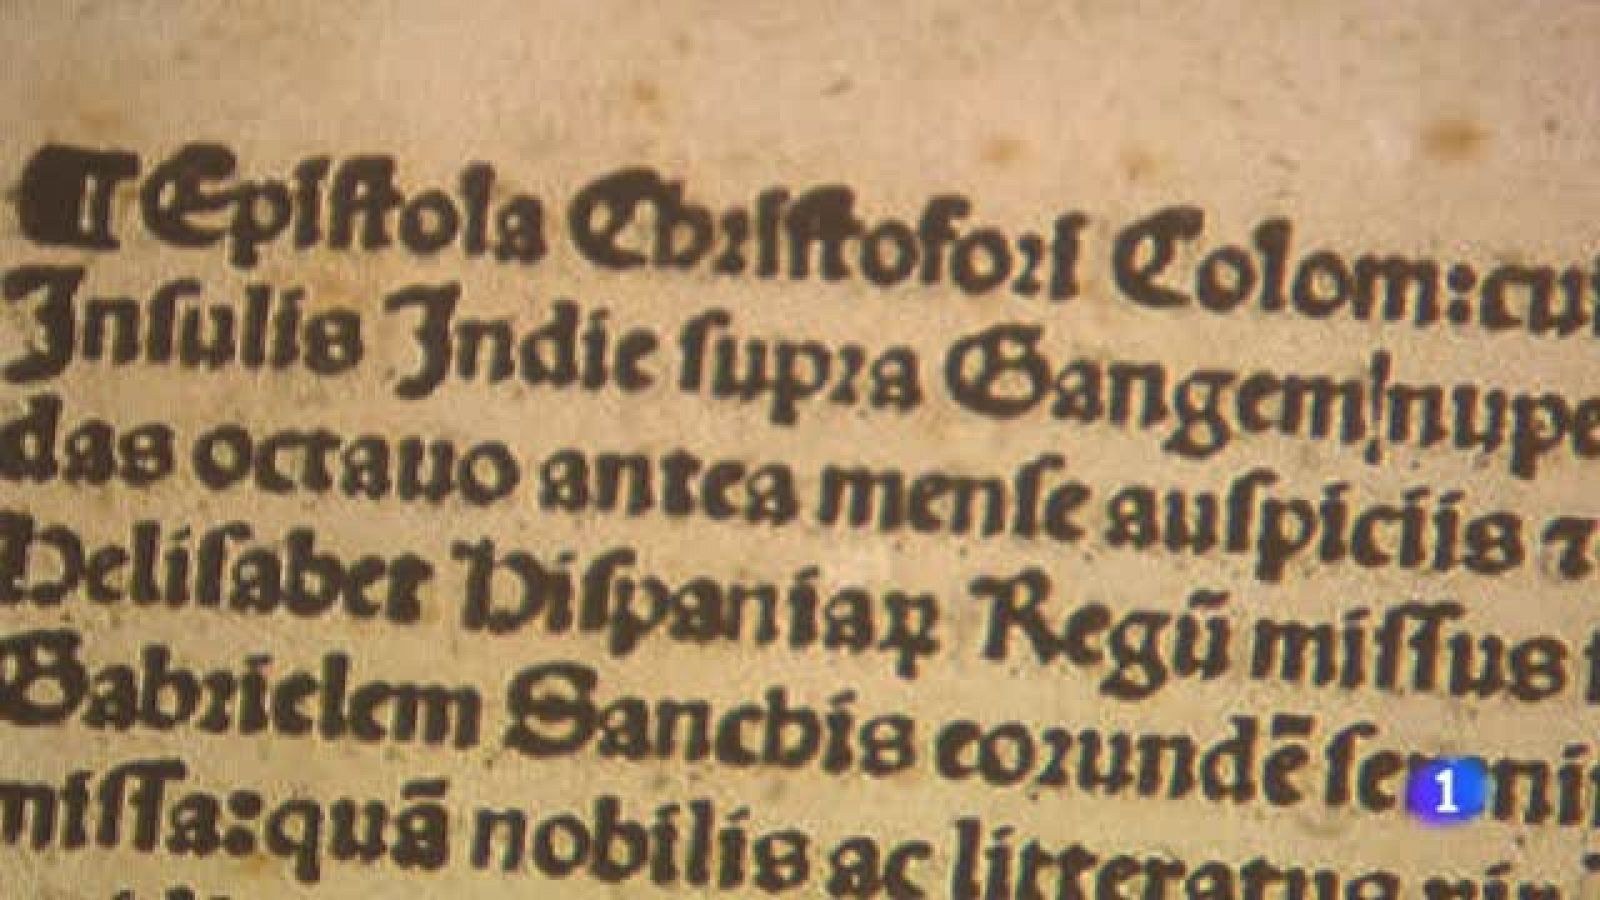 ¶ Epiſtola Chriſtofori Colom: cui
Inſulis Indie ſupra Gangem nupe
das octauo antea menſe auſpiciis ⁊
Heliſabet Hiſpaniaꝝ Regũ miſſus
Gabrielem Sanchis eorundẽ ſereni
miſſa: quã nobilis ac litteratus vir
1